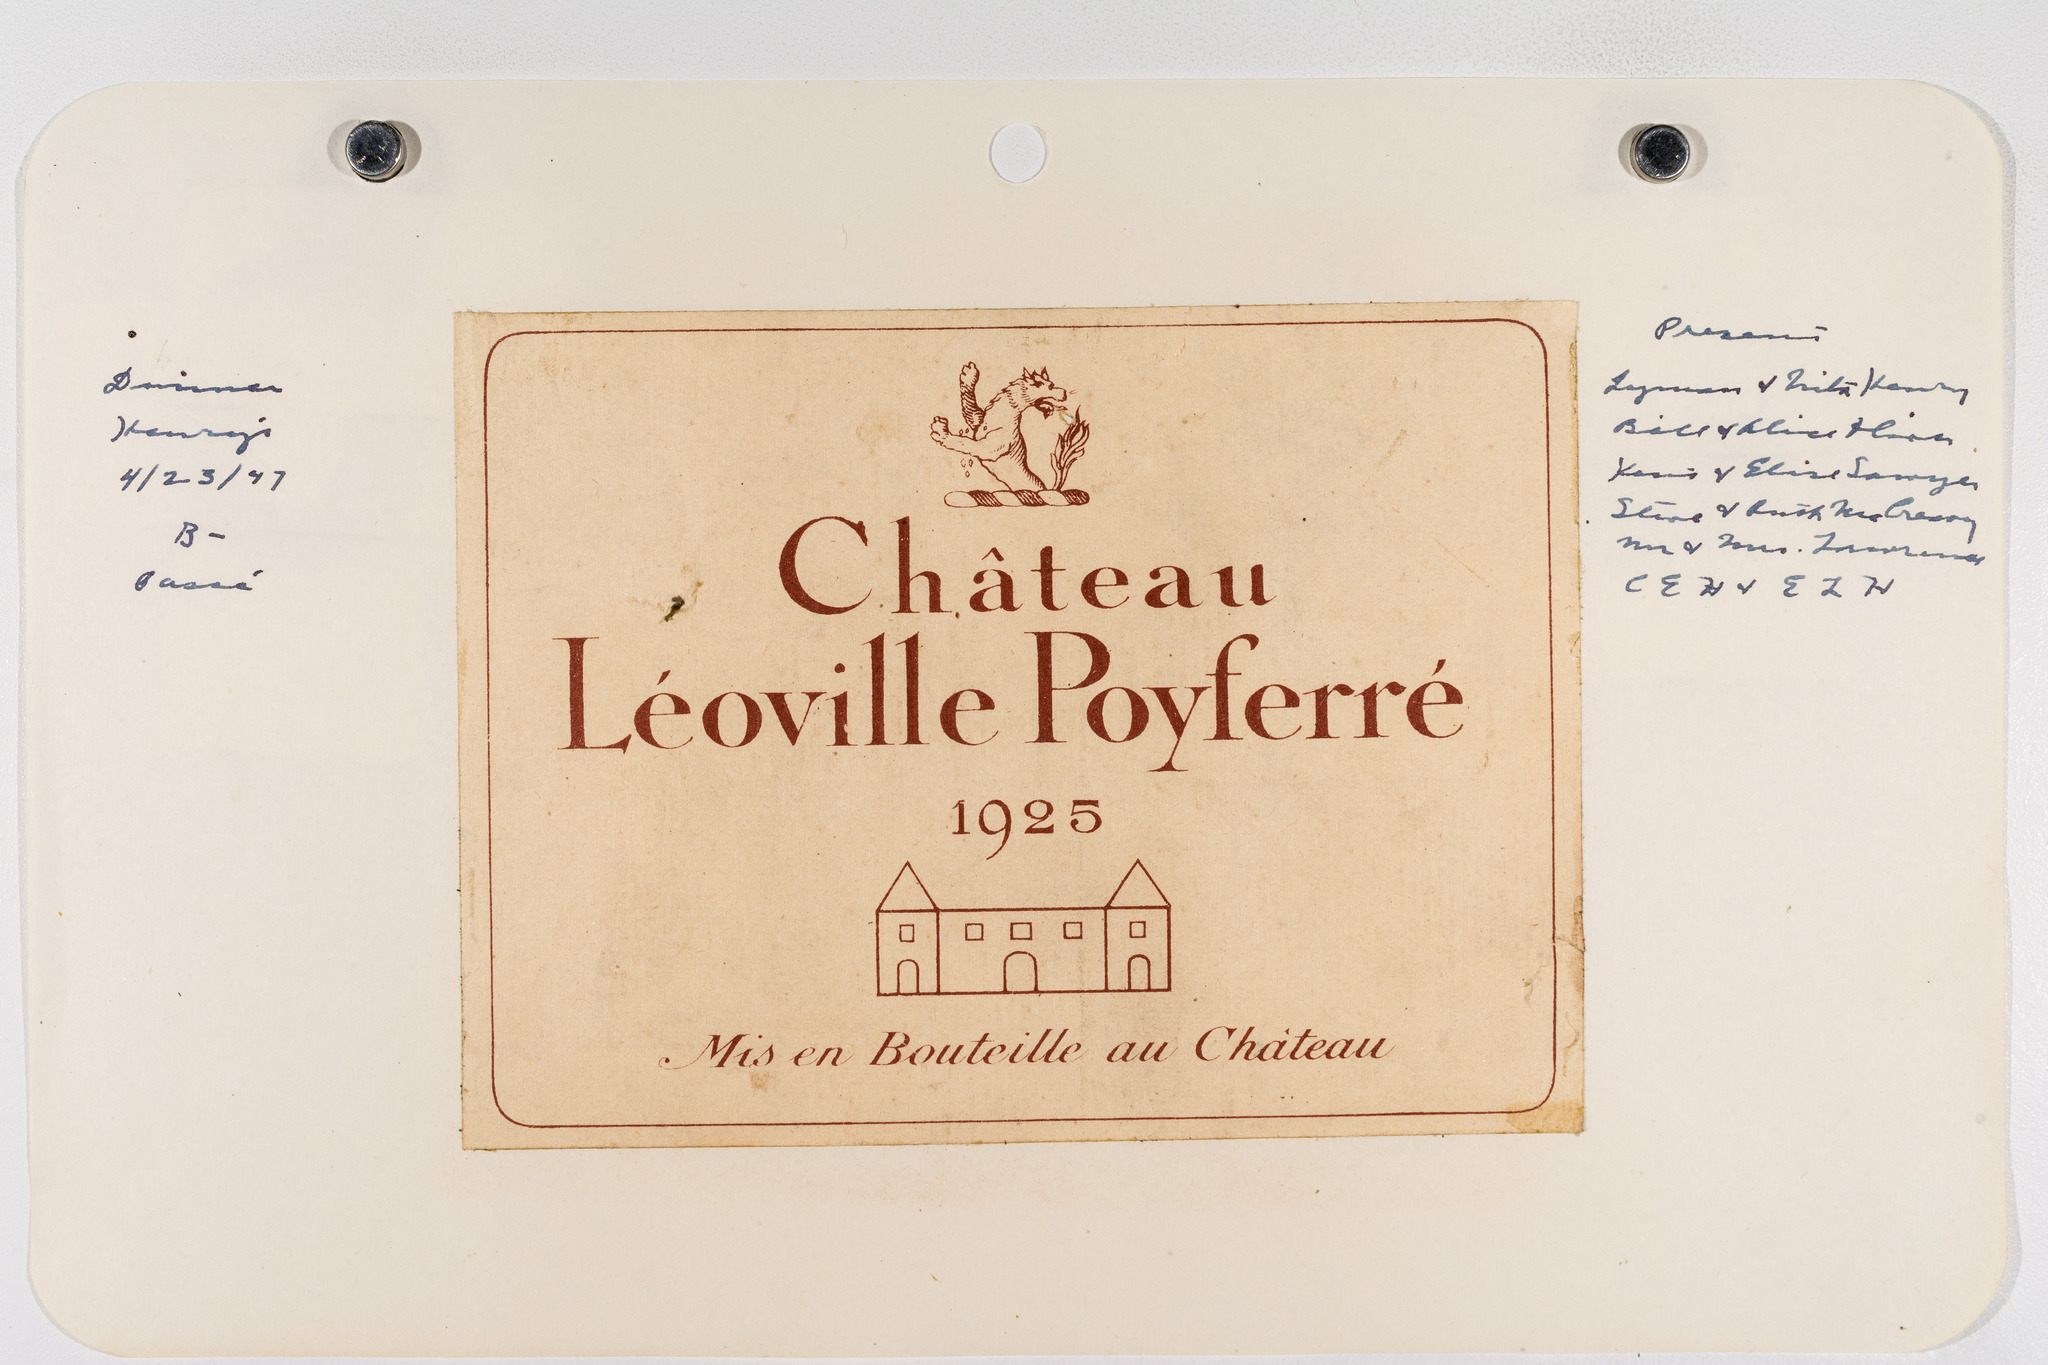 Dinner
Henry's
4/23/47
B-
Passé
Château
Léoville Poyferré
1925
Mis en Bouteille au Château
Present
Lyman & Henry
Bill & Alice
& Elise Sawyer
Steve & Ruth McCreary
Mr & Mrs. Lawrence
C E H & E L H